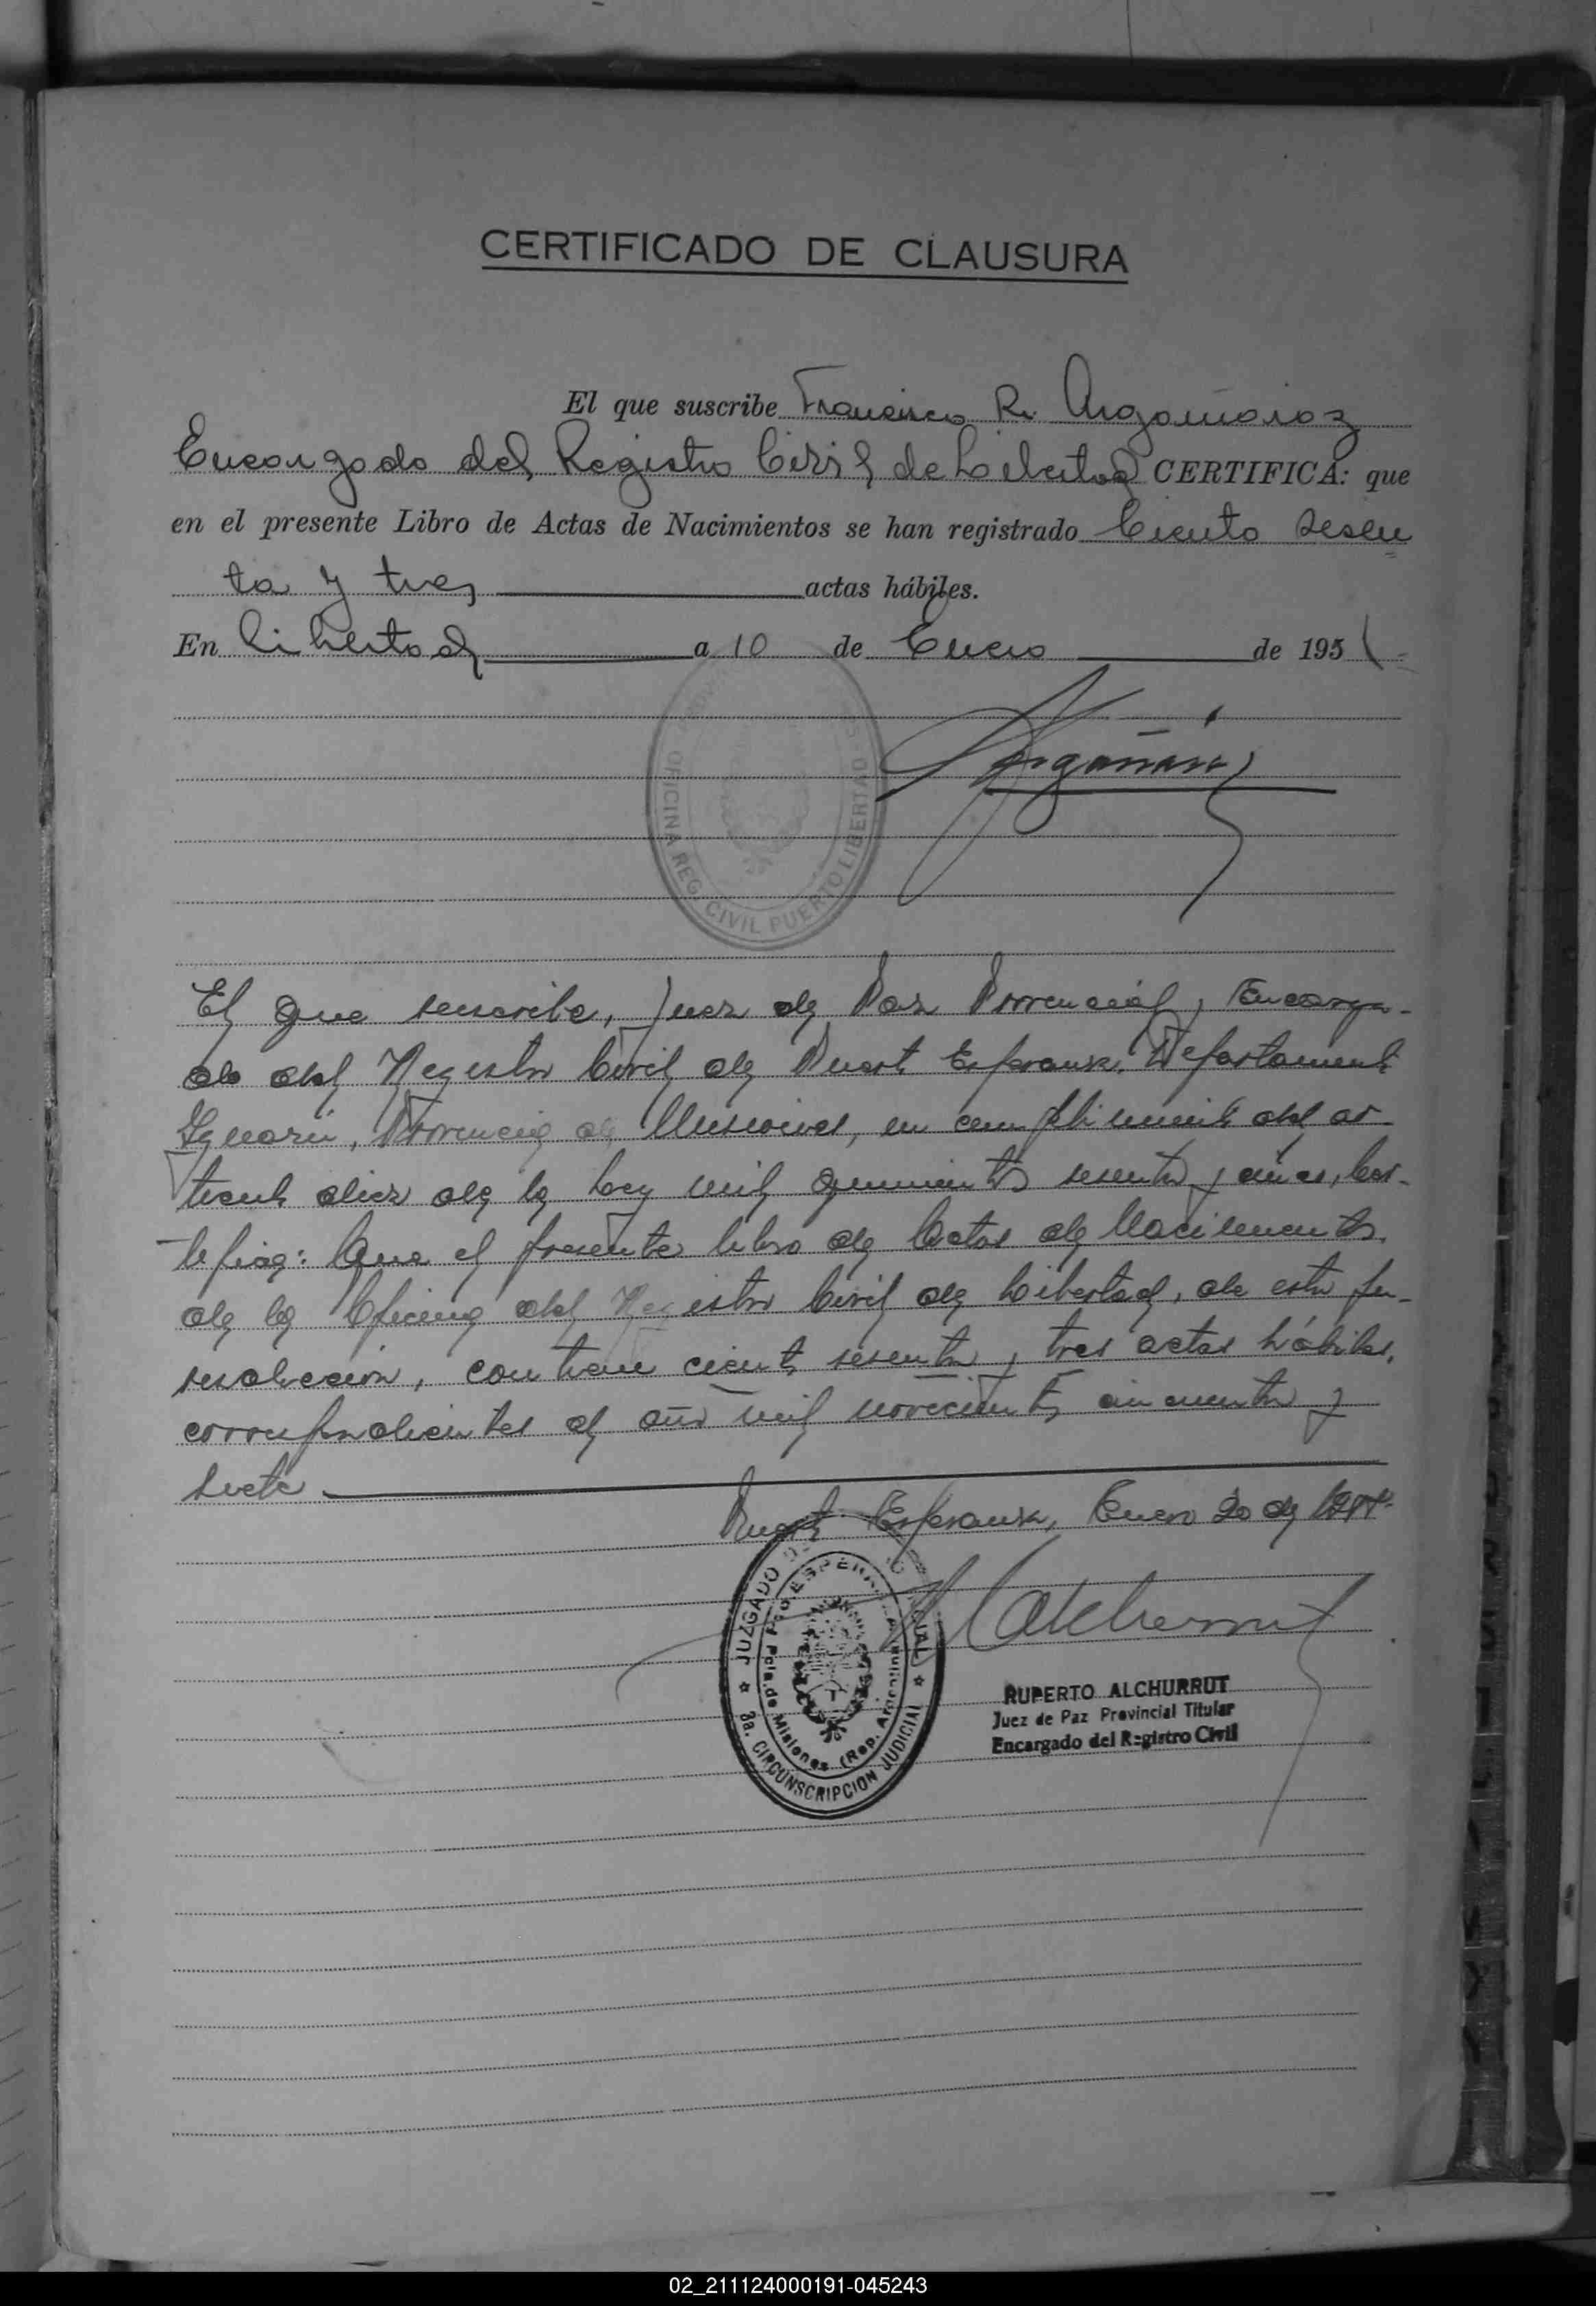 CERTIFICADO DE CLAUSURA
El que suscribe Francisco R. Argañaraz
Encargado del Registro Civil de Libertad CERTIFICA: que
en el presente Libro de Actas de Nacimientos se han registrado Ciento sesen
ta y tres actas hábiles.
En Libertad a 10 de Enero de 195
OFICINA REG. CIVIL PUERTO LIBERTAD
El que suscribe, Juez de Paz Provincial y Encarga-
do del Registro Civil de Puerto Esperanza, Departamento
Iguazú, Provincia de Misiones, en cumplimiento del ar-
tículo diez de la Ley mil quinientos sesenta y cinco, Cer-
tifica: Que el presente libro de Actas de Nacimientos,
de la Oficina del Registro Civil de Libertad, de esta ju-
risdicción, contiene ciento sesenta y tres actas hábiles,
correspondientes al año mil novecientos cincuenta y
siete
Puerto Esperanza, Enero 20 de
JUZGADO
PTO ESPERANZA
Pcia. de Misiones (Rep. Argentina)
3a. CIRCUNSCRIPCION JUDICIAL
RUPERTO ALCHURRUT
Juez de Paz Provincial Titular
Encargado del Registro Civil
02_211124000191-045243